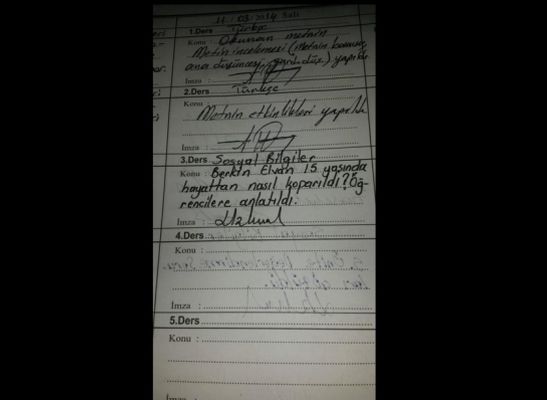 11/03/2014 Salı
1.Ders Türkçe
Konu : Okunan metnin
Metin incelemesi (metnin konusu,
ana düşüncesi, yard. düş.) yapıldı.
İmza :
2.Ders Türkçe
Konu
Metnin etkinlikleri yapıldı
İmza :
3.Ders Sosyal Bilgiler
Konu : Berkin Elvan 15 yaşında
hayattan nasıl koparıldı? Öğ-
rencilere anlatıldı.
İmza :
4.Ders
Konu :
İmza :
5.Ders
Konu :
İmza :